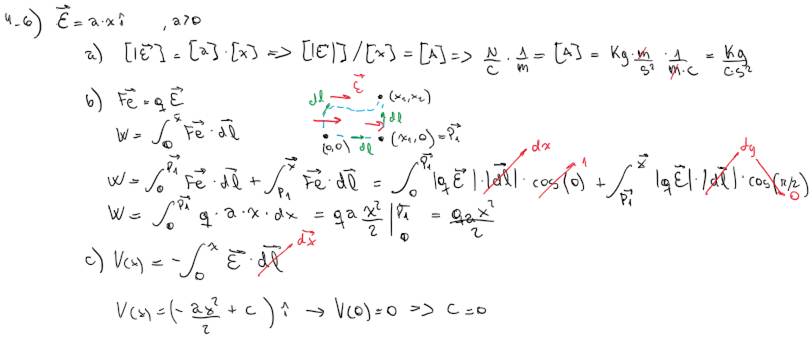 4-6) \vec{E} = a·x î , a>0
a) [|\vec{E}|] = [a]·[x] => [|\vec{E}|]/[x] = [A] => N/C · 1/m = [A] = Kg·m/s² · 1/m·C = Kg/C·s²
b) \vec{Fe} = q\vec{E}
\vec{E}
\vec{dl} (x₁,x₂)
\vec{dl}
W = ∫₀^{\vec{x}} \vec{Fe}·\vec{dl}
(0,0) \vec{dl} (x₁,0) = \vec{P₁}
dx 1 dy
W = ∫₀^{\vec{P₁}} \vec{Fe}·\vec{dl} + ∫_{P₁}^{\vec{x}} \vec{Fe}·\vec{dl} = ∫₀^{\vec{P₁}} |q\vec{E}|·|\vec{dl}|·cos(0) + ∫_{\vec{P₁}}^{\vec{x}} |q\vec{E}|·|\vec{dl}|·cos(π/2) 0
W = ∫₀^{\vec{P₁}} q·a·x·dx = qa x²/2 |₀^{\vec{P₁}} = qax²/2
\vec{dx}
c) V(x) = -∫₀^x \vec{E}·\vec{dl}
V(x) = (-ax²/2 + C) î → V(0)=0 => C=0